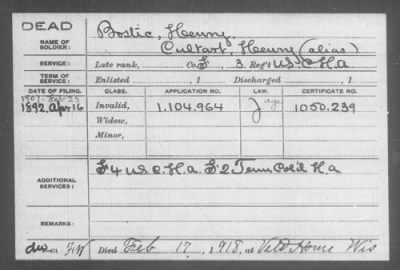 DEAD
NAME OF SOLDIER: Bostic, Henry,
Cultart, Henry (alias)
SERVICE: Late rank, Co. F, 3 Reg't U.S.C.H.A
TERM OF SERVICE: Enlisted , 1 Discharged , 1
DATE OF FILING. CLASS. APPLICATION NO. LAW. CERTIFICATE NO.
1907 Feb 25
1892, Apr 16 Invalid, 1.104.964 J age 1050.239
Widow,
Minor,
ADDITIONAL SERVICES: F 4 U.S.C.H.A. F 2 Tenn Col'd H.A
REMARKS:
Died Feb 17, 1918, at Vet's Home Wis